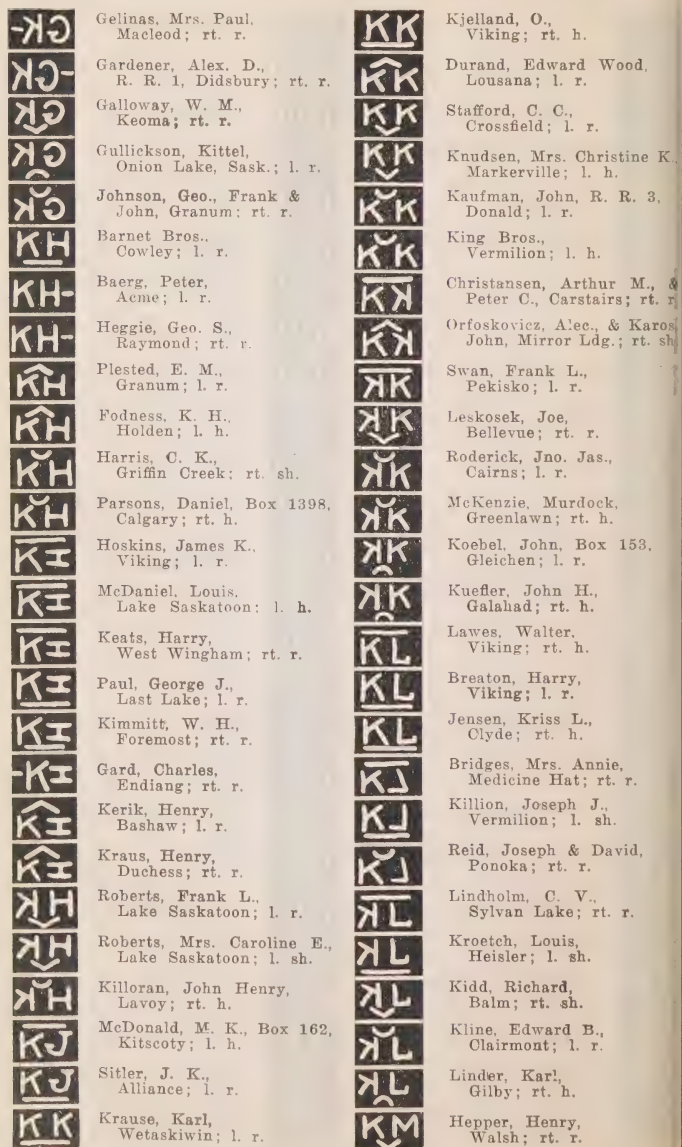 Gelinas, Mrs. Paul,
Macleod; rt. r.
Gardener, Alex. D.,
R. R. 1, Didsbury; rt. r.
Galloway, W. M.,
Keoma; rt. r.
Gullickson, Kittel,
Onion Lake, Sask.; l. r.
Johnson, Geo., Frank &
John, Granum; rt. r.
KH Barnet Bros.,
Cowley; l. r.
KH- Baerg, Peter,
Acme; l. r.
KH- Heggie, Geo. S.,
Raymond; rt. r.
KH Plested, E. M.,
Granum; l. r.
KH Fodness, K. H.,
Holden; l. h.
KH Harris, C. K.,
Griffin Creek; rt. sh.
KH Parsons, Daniel, Box 1398,
Calgary; rt. h.
Hoskins, James K.,
Viking; l. r.
McDaniel, Louis,
Lake Saskatoon; l. h.
Keats, Harry,
West Wingham; rt. r.
Paul, George J.,
Last Lake; l. r.
Kimmitt, W. H.,
Foremost; rt. r.
Gard, Charles,
Endiang; rt. r.
Kerik, Henry,
Bashaw; l. r.
Kraus, Henry,
Duchess; rt. r.
Roberts, Frank L.,
Lake Saskatoon; l. r.
Roberts, Mrs. Caroline E.,
Lake Saskatoon; l. sh.
Killoran, John Henry,
Lavoy; rt. h.
KJ McDonald, M. K., Box 162,
Kitscoty; l. h.
KJ Sitler, J. K.,
Alliance; l. r.
KK Krause, Karl,
Wetaskiwin; l. r.
KK Kjelland, O.,
Viking; rt. h.
KK Durand, Edward Wood,
Lousana; l. r.
KK Stafford, C. C.,
Crossfield; l. r.
KK Knudsen, Mrs. Christine K.
Markerville; l. h.
KK Kaufman, John, R. R. 3,
Donald; l. r.
KK King Bros.,
Vermilion; l. h.
Christansen, Arthur M., &
Peter C., Carstairs; rt. r
Orfoskovicz, Alec., & Karos
John, Mirror Ldg.; rt. sh
Swan, Frank L.,
Pekisko; l. r.
Leskosek, Joe,
Bellevue; rt. r.
Roderick, Jno. Jas.,
Cairns; l. r.
McKenzie, Murdock,
Greenlawn; rt. h.
Koebel, John, Box 153,
Gleichen; l. r.
Kuefler, John H.,
Galahad; rt. h.
KL Lawes, Walter,
Viking; rt. h.
KL Breaton, Harry,
Viking; l. r.
KL Jensen, Kriss L.,
Clyde; rt. h.
Bridges, Mrs. Annie,
Medicine Hat; rt. r.
Killion, Joseph J.,
Vermilion; l. sh.
Reid, Joseph & David,
Ponoka; rt. r.
Lindholm, C. V.,
Sylvan Lake; rt. r.
Kroetch, Louis,
Heisler; l. sh.
Kidd, Richard,
Balm; rt. sh.
Kline, Edward B.,
Clairmont; l. r.
Linder, Karl,
Gilby; rt. h.
KM Hepper, Henry,
Walsh; rt. r.